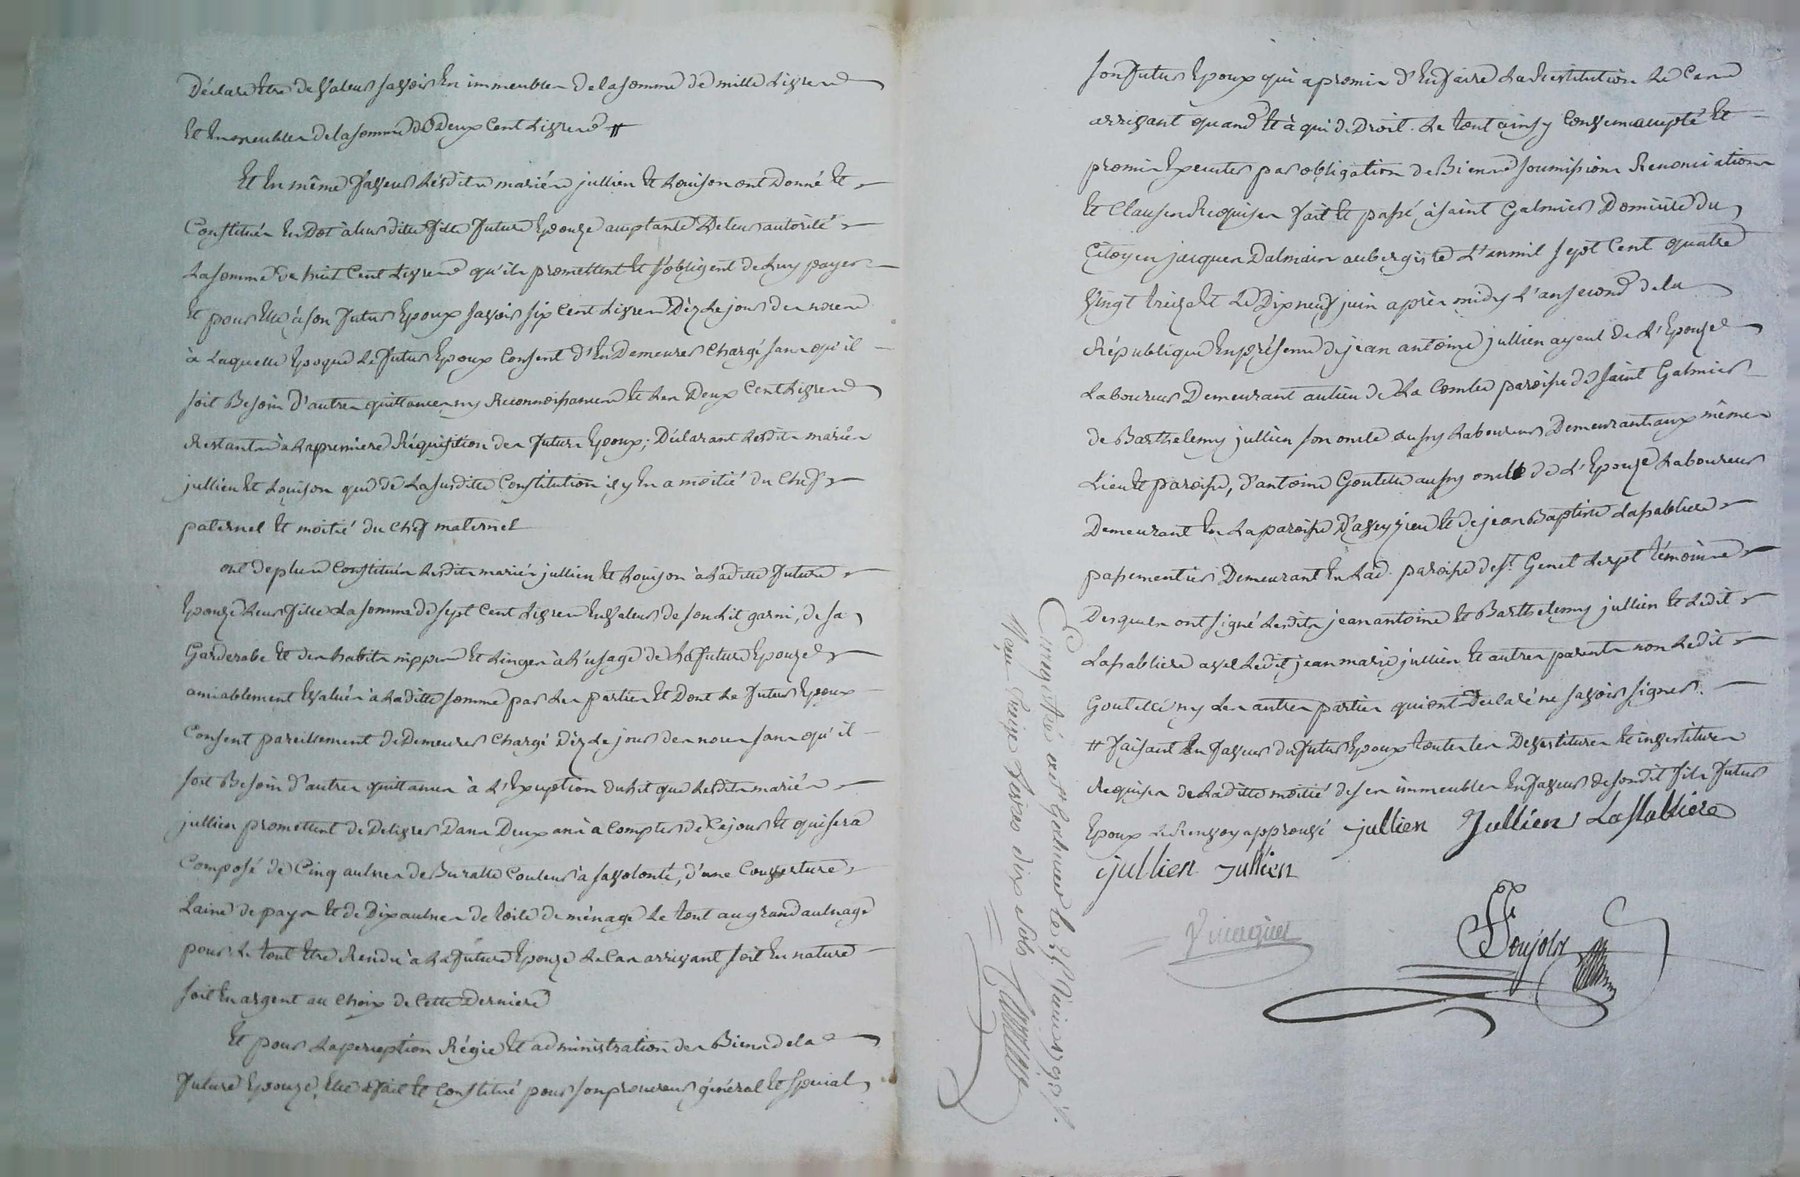 déclare être de valeur savoir en immeubles de la somme de mille livres
et en meubles de la somme de deux cent livres #
Et en même faveur lesdits mariés jullien et Louison ont donné et
constitué en dot à leur ditte fille future epouze acceptante de leur autorité
la somme de huit cent livres qu'ils promettent et s'obligent de luy payer
et pour elle à son futur epoux savoir six cent livres dèz le jour des noces
à laquelle epoque le futur epoux consent d'en demeurer chargé sans qu'il
soit besoin d'autres quittances ny reconnoissances et les deux cent livres
restants à la premiere réquisition des futurs epoux; déclarant lesdits mariés
jullien et Louison que de la susditte constitution il y en a moitié du chef
paternel et moitié du chef maternel
ont de plus constitué lesdits mariés jullien et Louison à laditte future
epouze leur fille la somme de sept cent livres en valeur de son lit garni, de sa
garderobe et des habits nippes et linges à l'usage de la future epouze
amiablement evalués à laditte somme par les parties et dont le futur epoux
consent pareillement de demeurer chargé dèz le jour des noces sans qu'il
soit besoin d'autres quittances à l'exception du lit que lesdits mariés
jullien promettent de delivrer dans deux ans à compter de ce jour et qui sera
composé de cinq aulnes de buratte couleur à sa volonté, d'une couverture
laine de pays et de dix aulnes de toile de ménage le tout au grand aulnage
pour le tout être rendu à la future epouze le cas arrivant soit en nature
soit en argent au choix de cette derniere
Et pour la perception régie et administration des biens de la
future epouze, elle a fait et constitué pour son procureur général et special
son futur epoux qui a promis d'en faire la restitution le cas
arrivant quand et à qui de droit. Le tout ainsy convenu accepté et
promis executer par obligation de biens soumissions renonciations
et clauses requises fait et passé à saint Galmier domicile du
citoyen jacques Dalmais aubergiste l'an mil sept cent quatre
vingt treize et le dix neuf juin après midy l'an second de la
république en présence de jean antoine jullien ayeul de l'epouze
laboureur demeurant au lieu de la Combe paroisse de saint Galmier
de Barthelemy jullien son oncle aussy laboureur demeurant aux mêmes
lieu et paroisse, d'antoine Goutelle aussy oncle de l'epouze laboureur
demeurant en la paroisse d'aveyzieu et de jean baptiste Lasabliere
passementier demeurant en lad. paroisse de st. Genet Lerpt témoins
desquels ont signé lesdits jean antoine et Barthelemy jullien et ledit
Lasabliere avec ledit jean marie jullien et autres parents non ledit
Goutelle ny les autres parties qui ont declaré ne savoir signer.
# faisant en faveur du futur epoux toutes les devestitures et investitures
requises de laditte moitié de ses immeubles en faveur de sondit fils futur
epoux le renvoy approuvé jullien Jullien Lasabliere
jullien Jullien
Poujols
Enregistré à st Galmier le 27 juin 1793.
Reçu treize livres dix sols